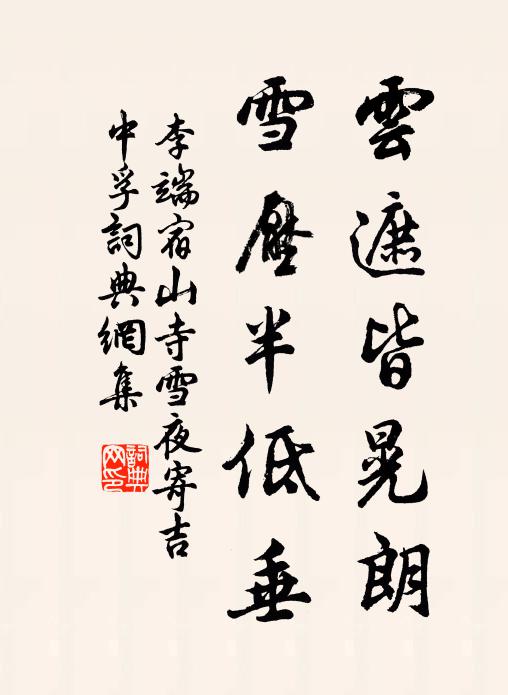 雲遮皆晃朗
雪壓半低垂
李端宿山寺雪夜寄吉
中孚詞典網集
詞典网印